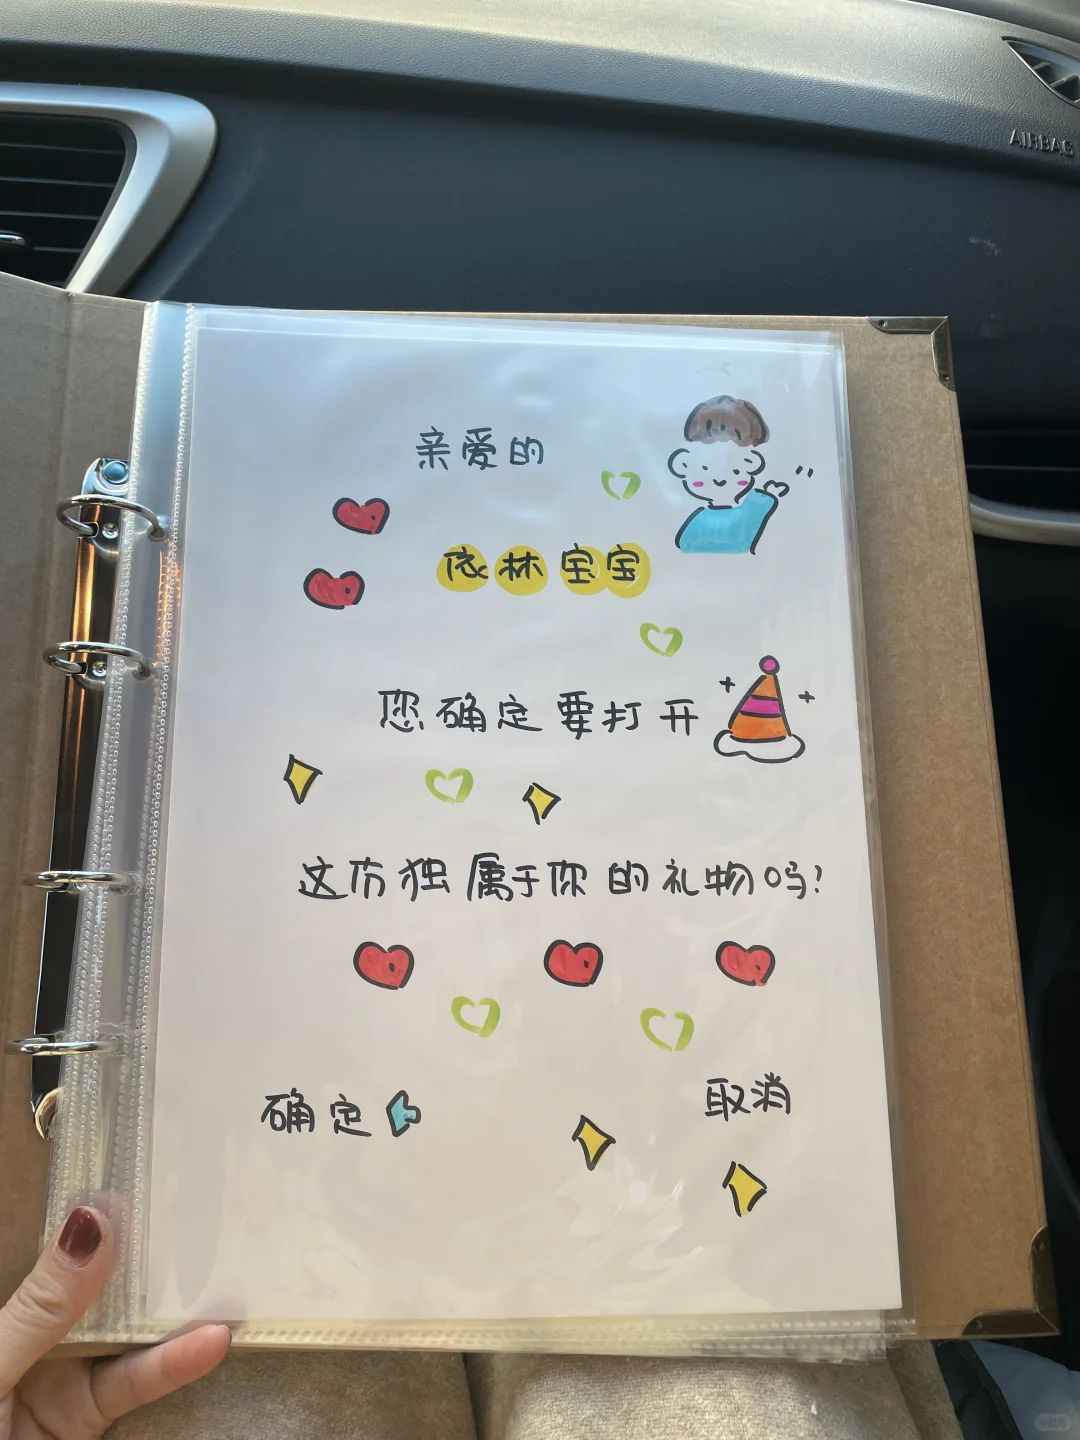 AIRBAG
亲爱的
依林宝宝
您确定要打开
这份独属于你的礼物吗?
确定
取消
小红书